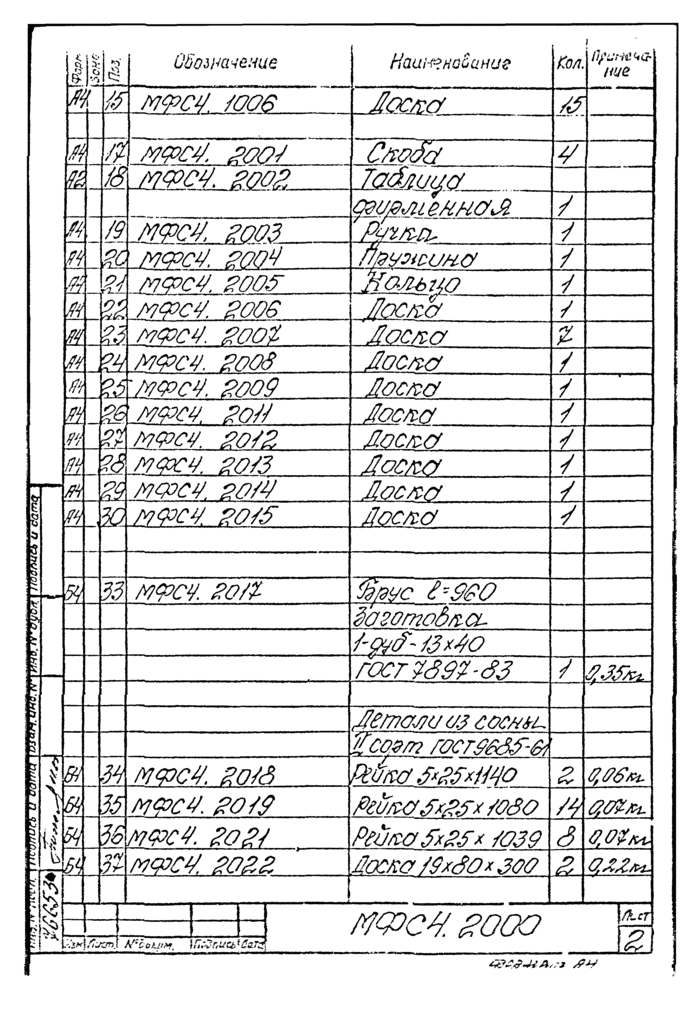 Форм. Зона Поз. Обозначение Наименование Кол. Примеча-
ние
А4 15 МФС4. 1006 Доска 15
А4 17 МФС4. 2001 Скоба 4
А2 18 МФС4. 2002 Таблица
фирменная 1
А4 19 МФС4. 2003 Ручка 1
А4 20 МФС4. 2004 Пружина 1
А4 21 МФС4. 2005 Кольцо 1
А4 22 МФС4. 2006 Доска 1
А4 23 МФС4. 2007 Доска 7
А4 24 МФС4. 2008 Доска 1
А4 25 МФС4. 2009 Доска 1
А4 26 МФС4. 2011 Доска 1
А4 27 МФС4. 2012 Доска 1
А4 28 МФС4. 2013 Доска 1
А4 29 МФС4. 2014 Доска 1
А4 30 МФС4. 2015 Доска 1
Б4 33 МФС4. 2017 Брус ℓ=960
Заготовка
1-дуб-13×40
ГОСТ 7897-83 1 0,35кг
Детали из сосны
II сорт ГОСТ 9685-61
Б4 34 МФС4. 2018 Рейка 5×25×1140 2 0,06кг
Б4 35 МФС4. 2019 Рейка 5×25×1080 14 0,07кг
Б4 36 МФС4. 2021 Рейка 5×25×1039 8 0,07кг
Б4 37 МФС4. 2022 Доска 19×80×300 2 0,22кг
МФС4. 2000
Лист
2
Изм Лист № докум. Подпись Дата
Формат А4
Инв. № подл. Подпись и дата Взам. инв. № Инв. № дубл. Подпись и дата